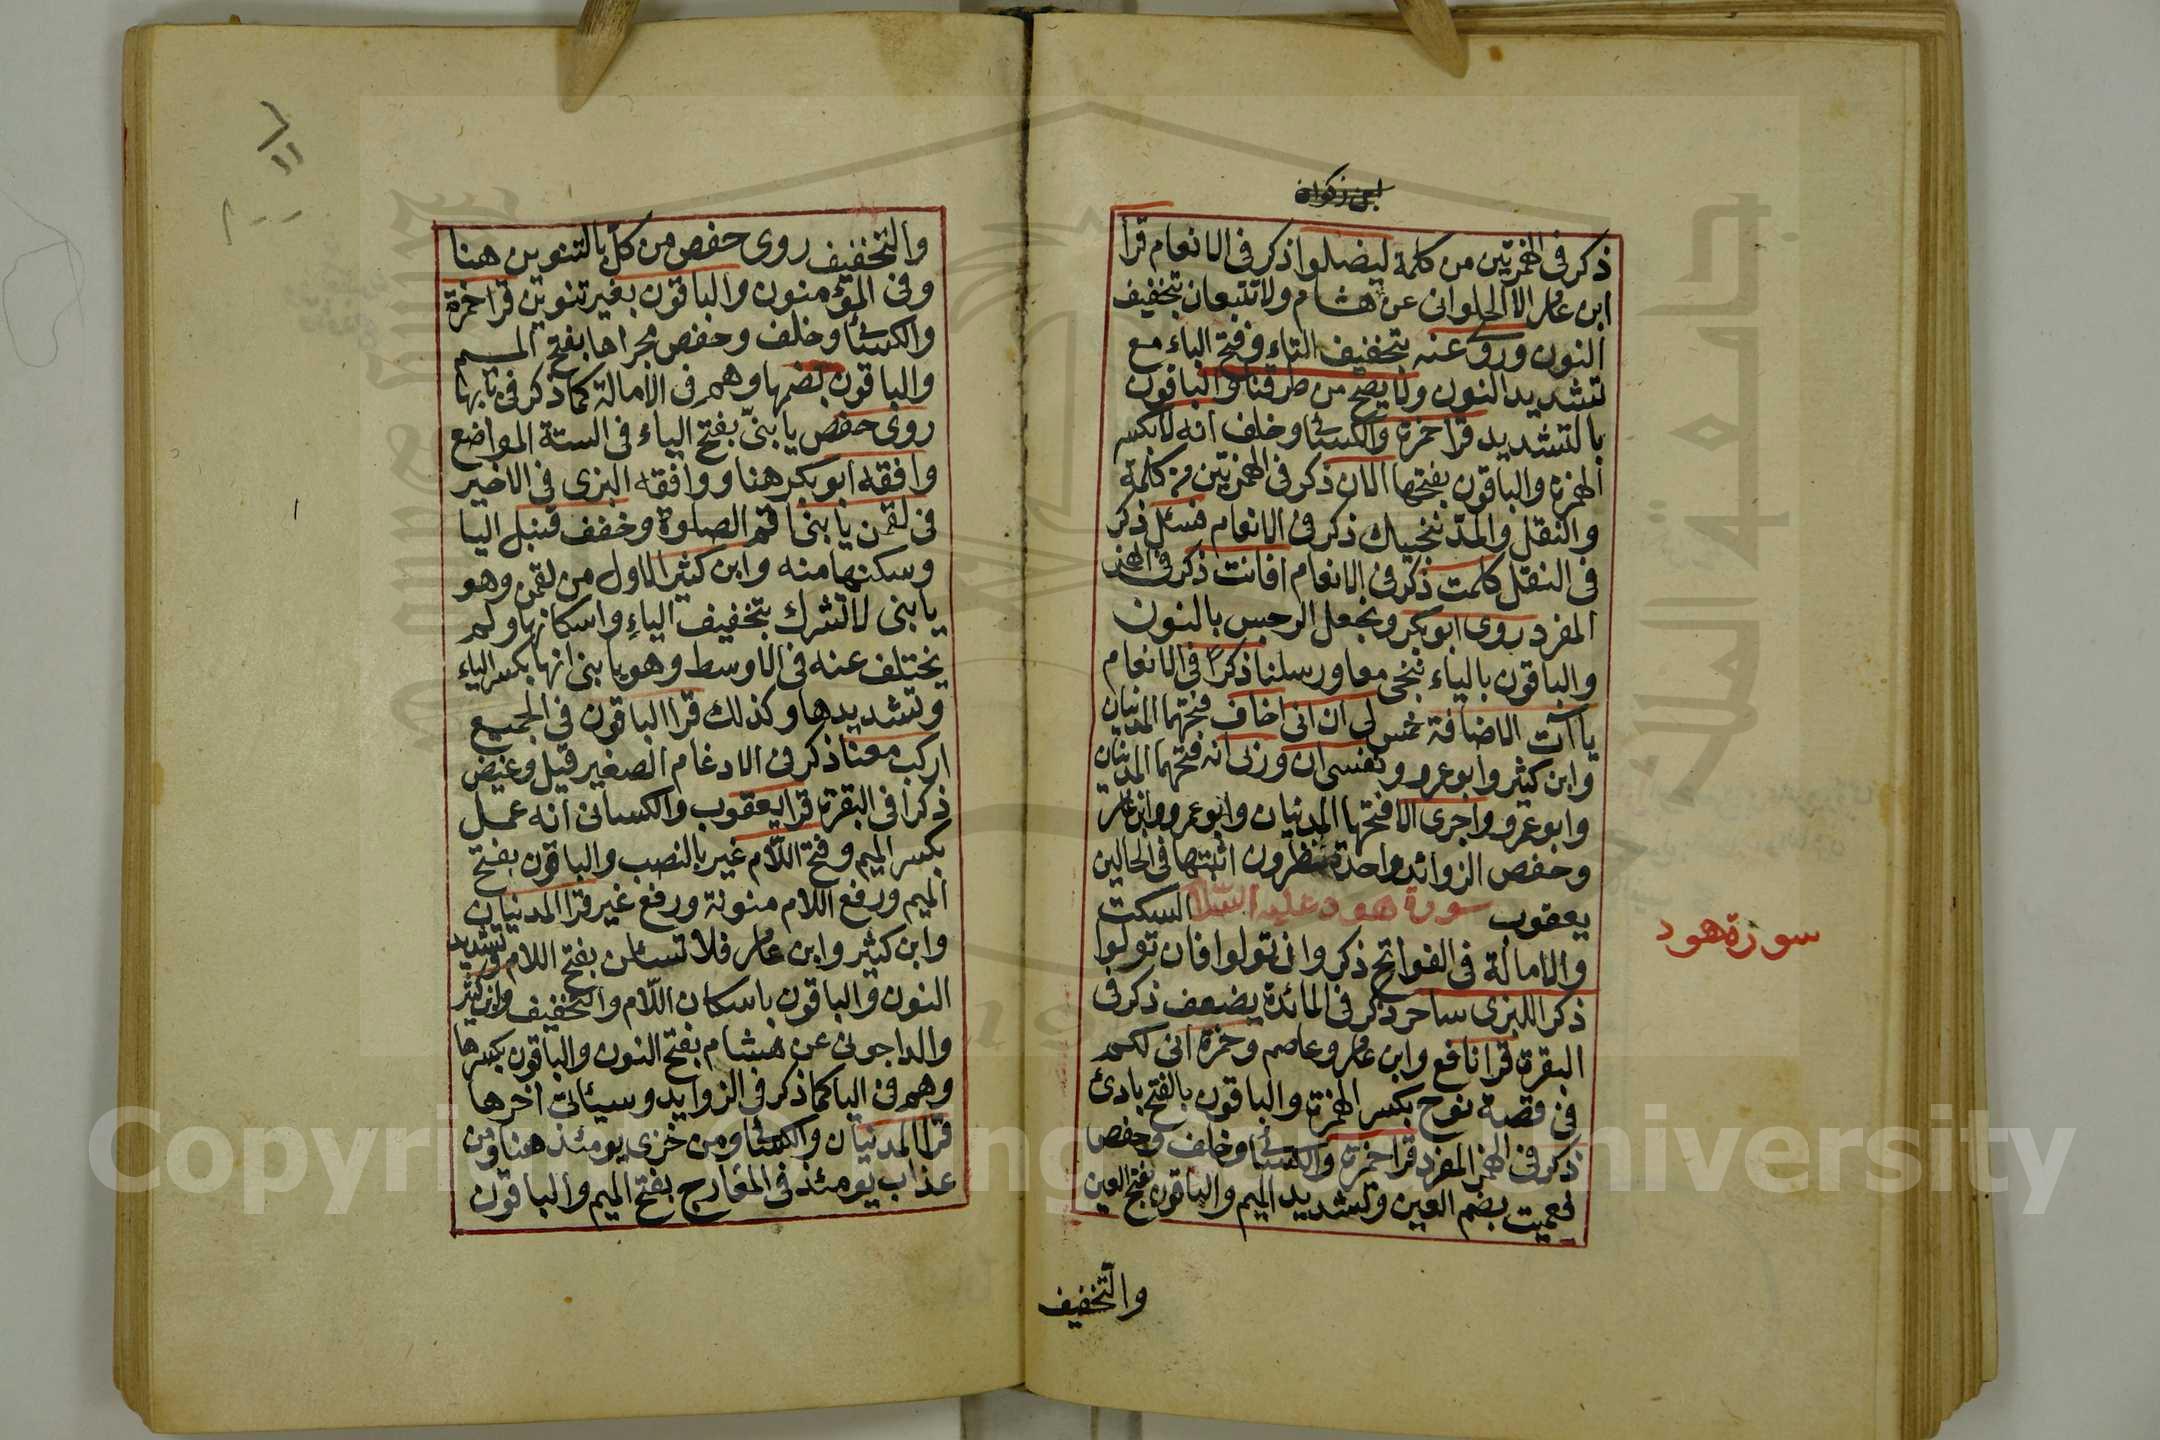 ابن ذكوان
ذكر فى الهمزتين من كلمة ليضلوا ذكر فى الانعام قرأ
ابن عامر الا الحلوانى عن هشام ولا تتبعان بتخفيف
النون وروى عنه بتخفيف التاء وفتح الباء مع
تشديد النون ولا يصح من طرقنا والباقون
بالتشديد قرا حمزة والكسائى وخلف انه لا بكسر
الهمزة والباقون بفتحها الان ذكر فى الهمزتين من كلمة
والنقل والمد ننجيك ذكر فى الانعام فسئل ذكر
فى النقل كلمت ذكر فى الانعام افانت ذكر فى الهمز
المفرد روى ابو بكر ونجعل الرجس بالنون
والباقون بالياء ننجى معا ورسلنا ذكرا فى الانعام
ياآت الاضافة خمس لى ان انى اخاف فتحهما المدنيان
وابن كثير وابو عمرو ونفسى ان وربى انه فتحهما المدنيان
وابو عمرو واجرى الا فتحها المدنيان وابو عمرو وابن عامر
وحفص الزوائد واحدة تنظرون اثبتها فى الحالين
يعقوب سورة هود عليه السلام السكت
والامالة فى الفواتح ذكر وان تولوا فان تولوا
ذكر اللبزى ساحر ذكر فى المائدة يضعف ذكر فى
البقرة قرا نافع وابن عامر وعاصم وحمزة انى لكم
فى قصة نوح بكسر الهمزة والباقون بالفتح بادئ
ذكر فى الهمز المفرد قرا حمزة والكسائى وخلف وحفص
فعميت بضم العين وتشديد الميم والباقون بفتح العين
والتخفيف
سورة هود
والتخفيف روى حفص من كل بالتنوين هنا
وفى المؤمنون والباقون بغير تنوين قرا حمزة
والكسائى وخلف وحفص مجراها بفتح الميم
والباقون بضمها وهم فى الامالة كما ذكر فى بابها
روى حفص يا بنىّ بفتح الياء فى الستة المواضع
وافقه ابو بكر هنا ووافقه البزى فى الاخير
فى لقمن يا بنى اقم الصلوة وخفف قنبل اليا
وسكنها منه وابن كثير الاول من لقمن وهو
يا بنى لا تشرك بتخفيف الياء واسكانها ولم
يختلف عنه فى الاوسط وهو يا بنى انها بكسر الياء
وتشديدها وكذلك قرا الباقون فى الجميع
اركب معنا ذكر فى الادغام الصغير قيل وغيض
ذكرا فى البقرة قرا يعقوب والكسائى انه عمل
بكسر الميم وفتح اللام غير بالنصب والباقون بفتح
الميم ورفع اللام منونة ورفع غير قرا المدنيان
وابن كثير وابن عامر فلا تسئلن بفتح اللام وتشديد
النون والباقون باسكان اللام والتخفيف وابن كثير
والداجونى عن هشام بفتح النون والباقون بكسرها
وهم فى اليا كما ذكر فى الزوايد وسيئاتى اخرها
قرا المدنيان والكسائى ومن خزى يومئذ هنا ومن
عذاب يومئذ فى المعارج بفتح الميم والباقون
Copyright © King Saud University